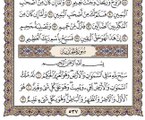 فَرَوْحٌ وَرَيْحَانٌ وَجَنَّتُ نَعِيمٍ ۝ وَأَمَّا إِن كَانَ مِنْ أَصْحَٰبِ
ٱلْيَمِينِ ۝ فَسَلَٰمٌ لَّكَ مِنْ أَصْحَٰبِ ٱلْيَمِينِ ۝ وَأَمَّا إِن كَانَ مِنَ
ٱلْمُكَذِّبِينَ ٱلضَّآلِّينَ ۝ فَنُزُلٌ مِّنْ حَمِيمٍ ۝ وَتَصْلِيَةُ جَحِيمٍ ۝
إِنَّ هَٰذَا لَهُوَ حَقُّ ٱلْيَقِينِ ۝ فَسَبِّحْ بِٱسْمِ رَبِّكَ ٱلْعَظِيمِ ۝
سُورَةُ الحَدِيدِ
بِسْمِ ٱللَّهِ ٱلرَّحْمَٰنِ ٱلرَّحِيمِ
سَبَّحَ لِلَّهِ مَا فِى ٱلسَّمَٰوَٰتِ وَٱلْأَرْضِ وَهُوَ ٱلْعَزِيزُ ٱلْحَكِيمُ ۝ لَهُۥ مُلْكُ
ٱلسَّمَٰوَٰتِ وَٱلْأَرْضِ يُحْىِۦ وَيُمِيتُ وَهُوَ عَلَىٰ كُلِّ شَىْءٍ قَدِيرٌ ۝ هُوَ
ٱلْأَوَّلُ وَٱلْآخِرُ وَٱلظَّٰهِرُ وَٱلْبَاطِنُ وَهُوَ بِكُلِّ شَىْءٍ عَلِيمٌ ۝
٥٣٧